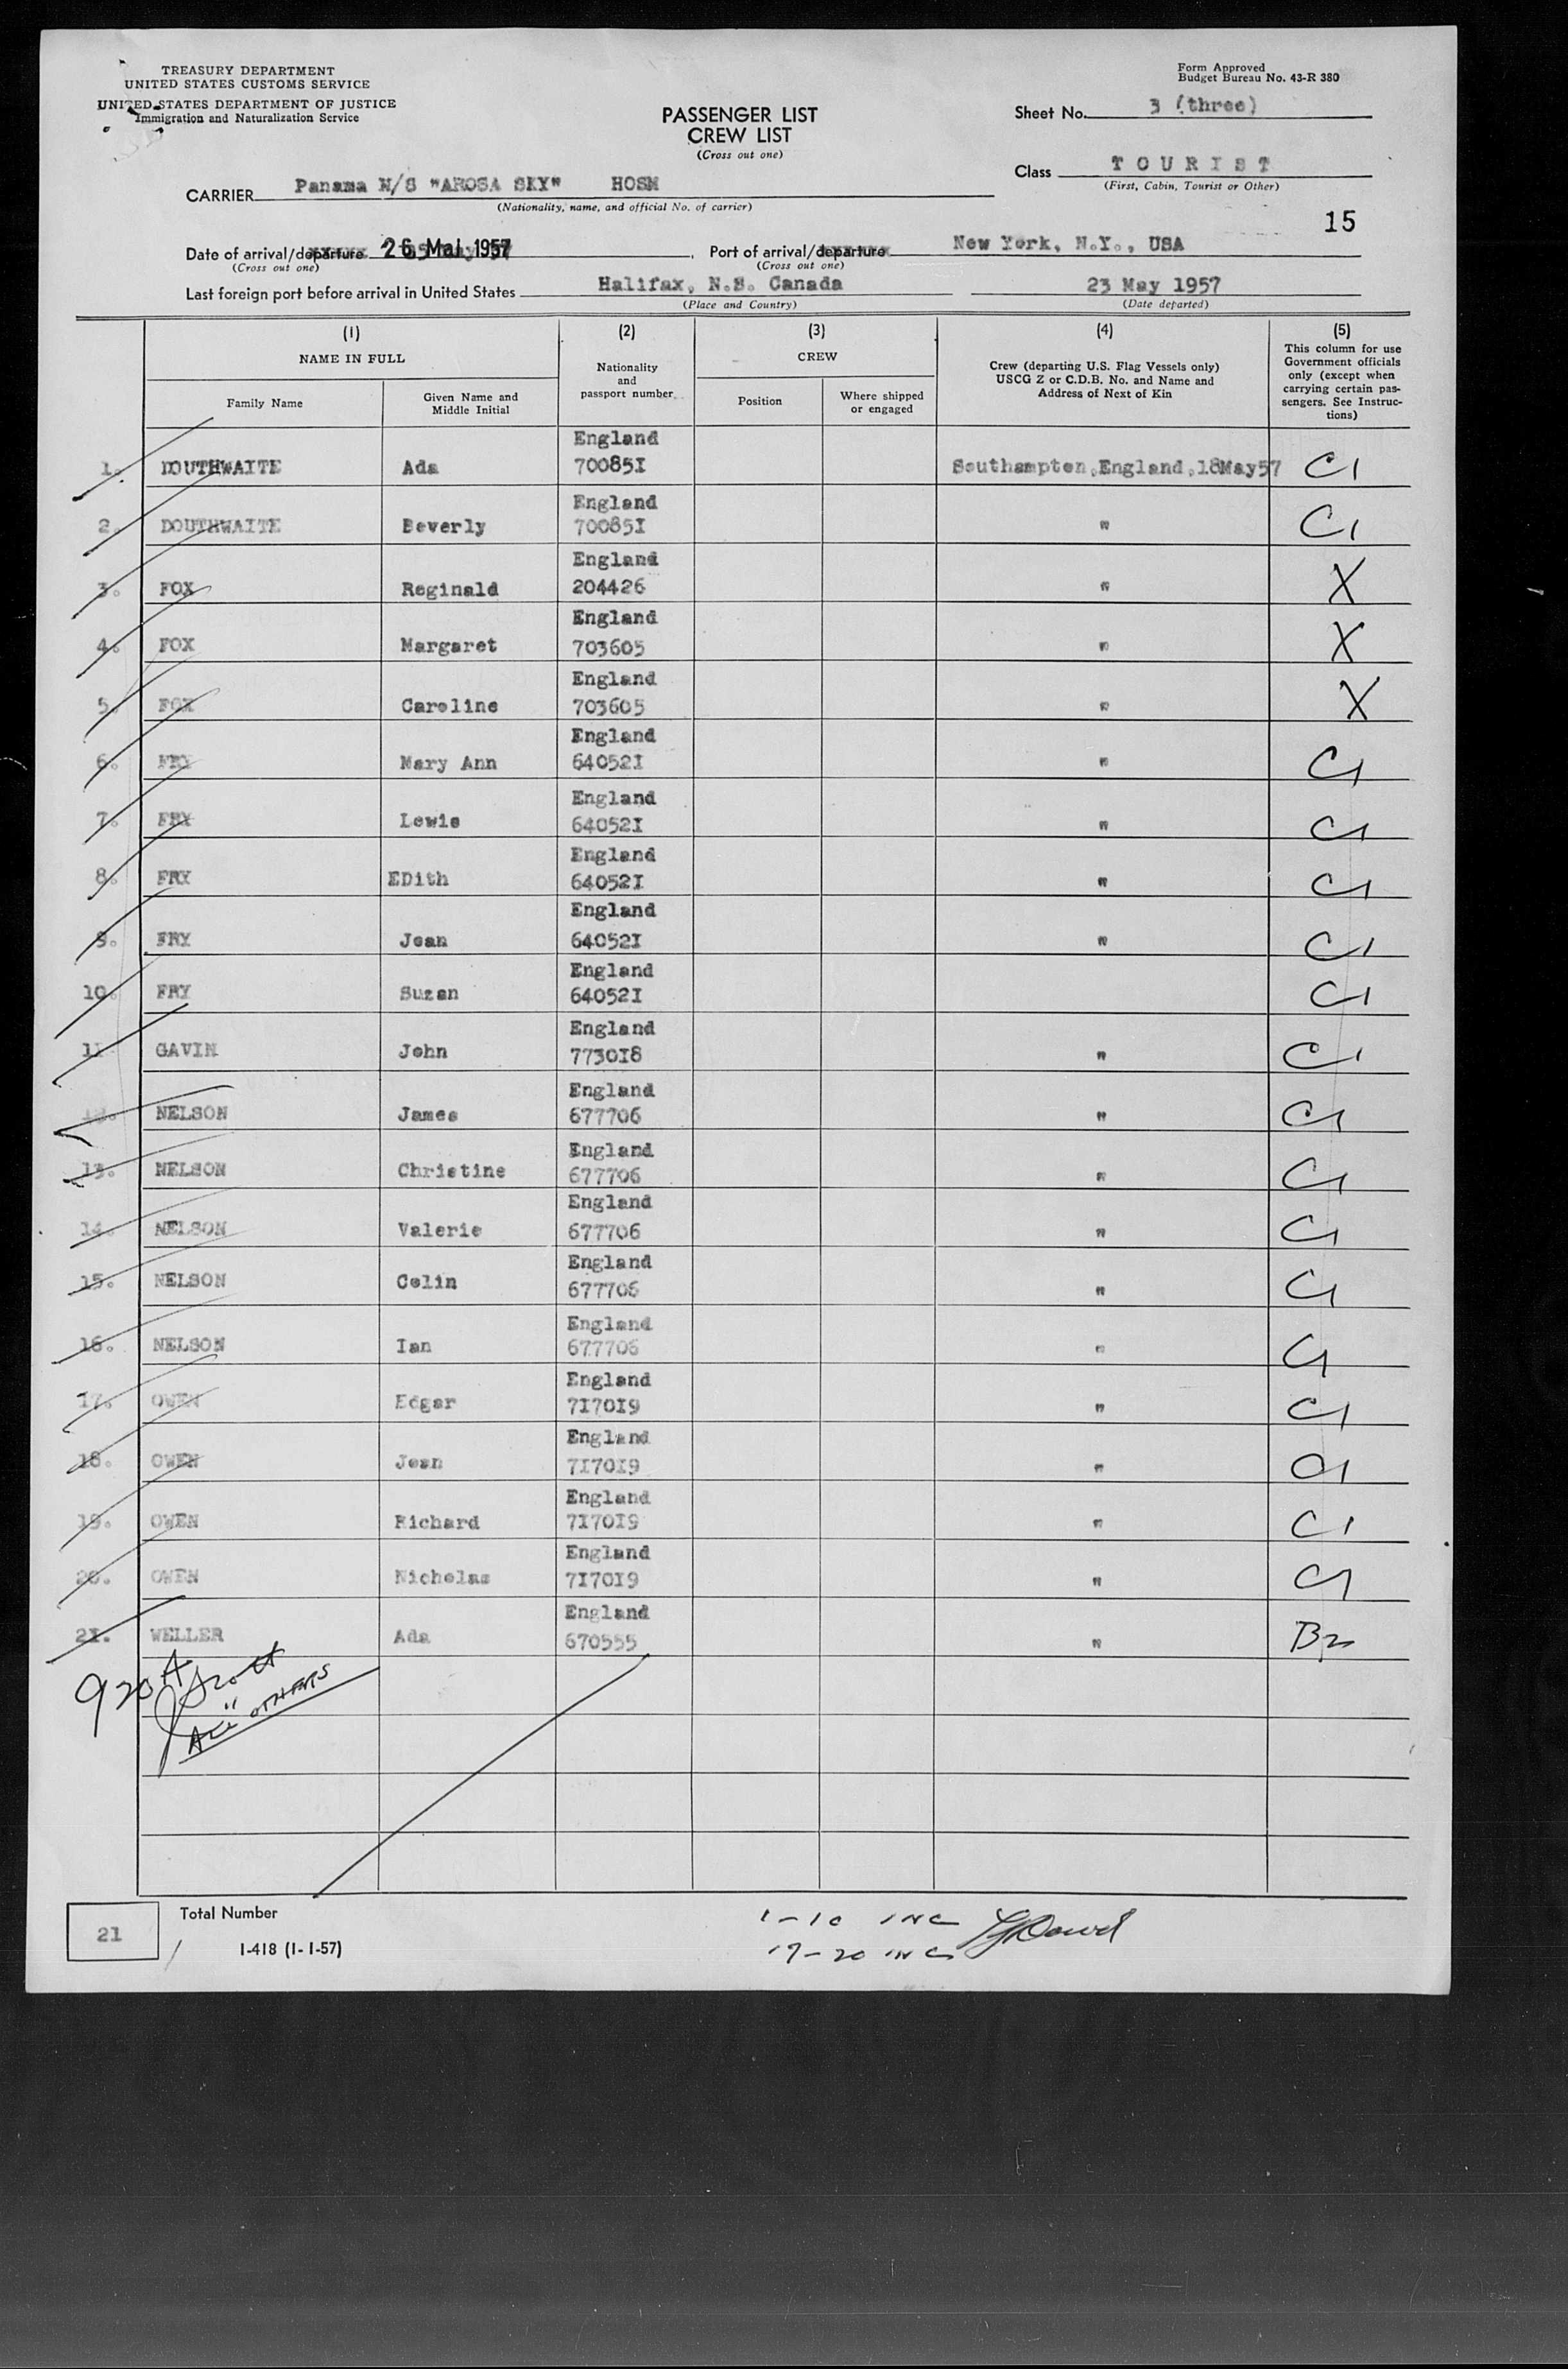 TREASURY DEPARTMENT
UNITED STATES CUSTOMS SERVICE
UNITED STATES DEPARTMENT OF JUSTICE
Immigration and Naturalization Service
Form Approved
Budget Bureau No. 43-R 380
PASSENGER LIST
CREW LIST
(Cross out one)
Sheet No. 3 (three)
Class TOURIST
(First, Cabin, Tourist or Other)
CARRIER Panama M/S "AROSA SKY" HOSM
(Nationality, name, and official No. of carrier)
15
Date of arrival/departure 26 Mai 1957, Port of arrival/departure New York, N.Y., USA
(Cross out one) (Cross out one)
Last foreign port before arrival in United States Halifax, N.S. Canada, 23 May 1957
(Place and Country) (Date departed)
(1) (2) (3) (4) (5)
NAME IN FULL
Family Name
Given Name and Middle Initial
Nationality and passport number
CREW
Position
Where shipped or engaged
Crew (departing U.S. Flag Vessels only)
USCG Z or C.D.B. No. and Name and
Address of Next of Kin
This column for use
Government officials
only (except when
carrying certain pas-
sengers. See Instruc-
tions)
1. DOUTHWAITE Ada England 70085I Southampton,England,18May57 C1
2. DOUTHWAITE Beverly England 70085I " C1
3. FOX Reginald England 204426 " X
4. FOX Margaret England 703605 " X
5. FOX Caroline England 703605 " X
6. FRY Mary Ann England 64052I " C1
7. FRY Lewis England 64052I " C1
8. FRY EDith England 64052I " C1
9. FRY Jean England 64052I " C1
10. FRY Suzan England 64052I C1
11 GAVIN John England 7730I8 " C1
12. NELSON James England 677706 " C1
13. NELSON Christine England 677706 " C1
14. NELSON Valerie England 677706 " C1
15. NELSON Colin England 677706 " C1
16. NELSON Ian England 677706 " C1
17. OWEN Edgar England 7I70I9 " C1
18. OWEN Jean England 7I70I9 " C1
19. OWEN Richard England 7I70I9 " C1
20. OWEN Nicholas England 7I70I9 " C1
21. WELLER Ada England 670555 " B2
920A
J Scott
"ALL" OTHERS
21
Total Number
I-418 (1-1-57)
1-10 INC
17-20 INC